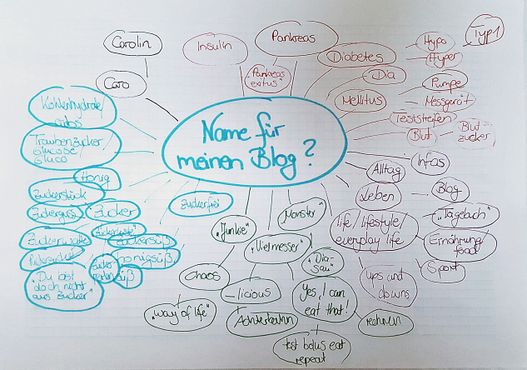 Carolin
Caro
Insulin
Pankreas
"Pankreas
exitus"
Diabetes
Dia
Mellitus
Typ 1
Hypo
Hyper
Pumpe
Messgerät
Teststreifen
Blut
Blut-
zucker
Name für
meinen Blog?
Kohlenhydrate/
Traubenzucker
Glucose/
Gluco
Honig
Zuckerstück
Zuckerguss
Zucker
Zuckerwatte
Zuckersüß
honigsüß
süß
"Du bist
doch nicht
aus Zucker"
Zuckerfrei
Infos
Alltag
Leben
Blog
"Tagebuch"
life/lifestyle/
everyday life
Ernährung/
food
Sport
ups and
downs
"Junkie"
Monster"
Vielmesser"
"Dia-
sau"
Chaos
"way of life"
_licious
Achterbahn
"yes, I can
eat that!"
rechnen
test bolus eat
repeat